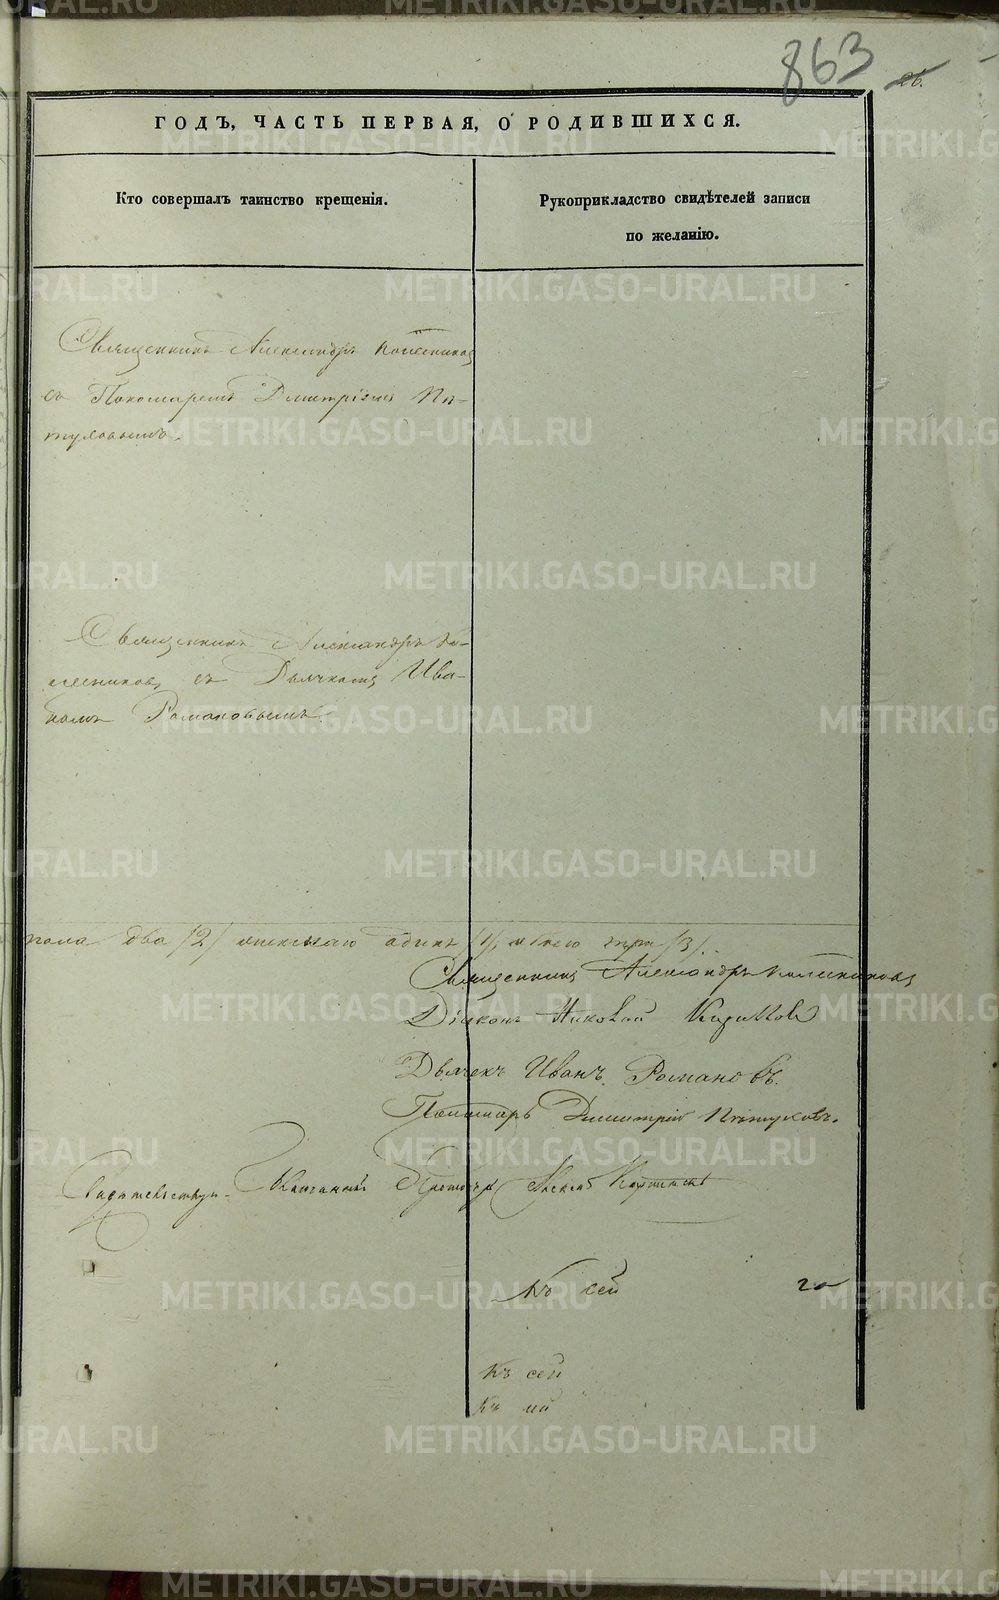 863
26.
ГОДЪ, ЧАСТЬ ПЕРВАЯ, О РОДИВШИХСЯ.
Кто совершалъ таинство крещенія.
Рукоприкладство свидѣтелей записи
по желанію.
Священникъ Александръ Колесниковъ
съ Пономаремъ Димитріемъ Пѣ-
туховымъ.
Священникъ Александръ Ко-
лесниковъ, съ Дьячкомъ Ива-
номъ Романовымъ.
пола два /2/ женскаго одинъ /1/, обоего три /3/.
Священникъ Александръ Колесниковъ
Діаконъ Николай
Дьячекъ Иванъ Романовъ.
Пономарь Димитрій Пѣтуховъ.
Свидѣтельствую. Благочинный
Къ сей
Къ сей
Къ
METRIKI.GASO-URAL.RU